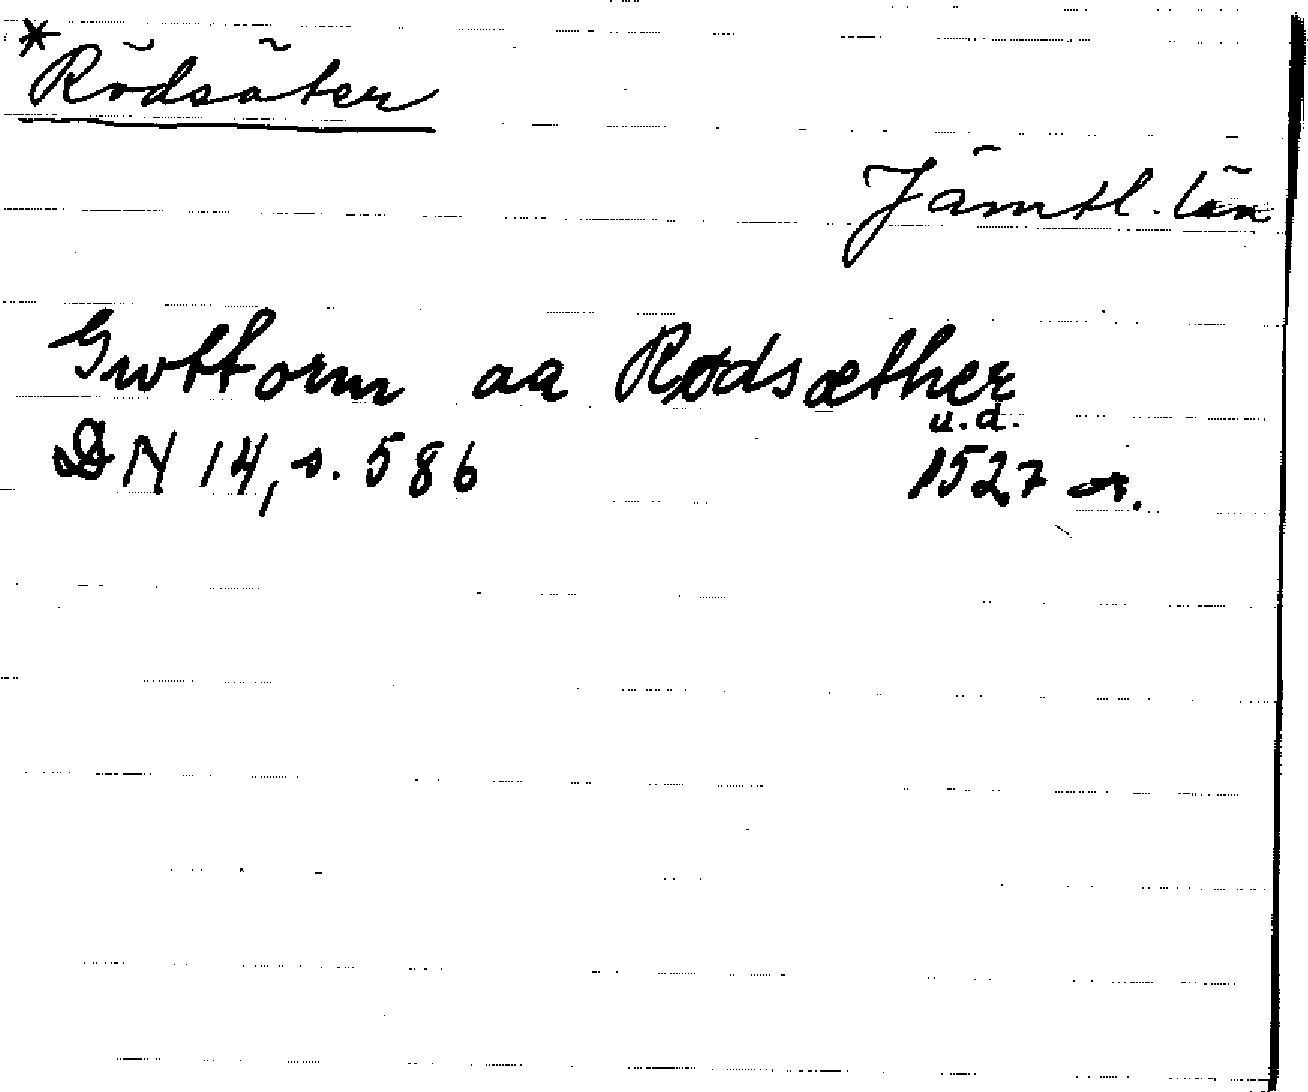 *Rödsäter
Jämtl. län
Guttorm aa Rødsæther
u.d.
DN 14, s. 586 1527 or.